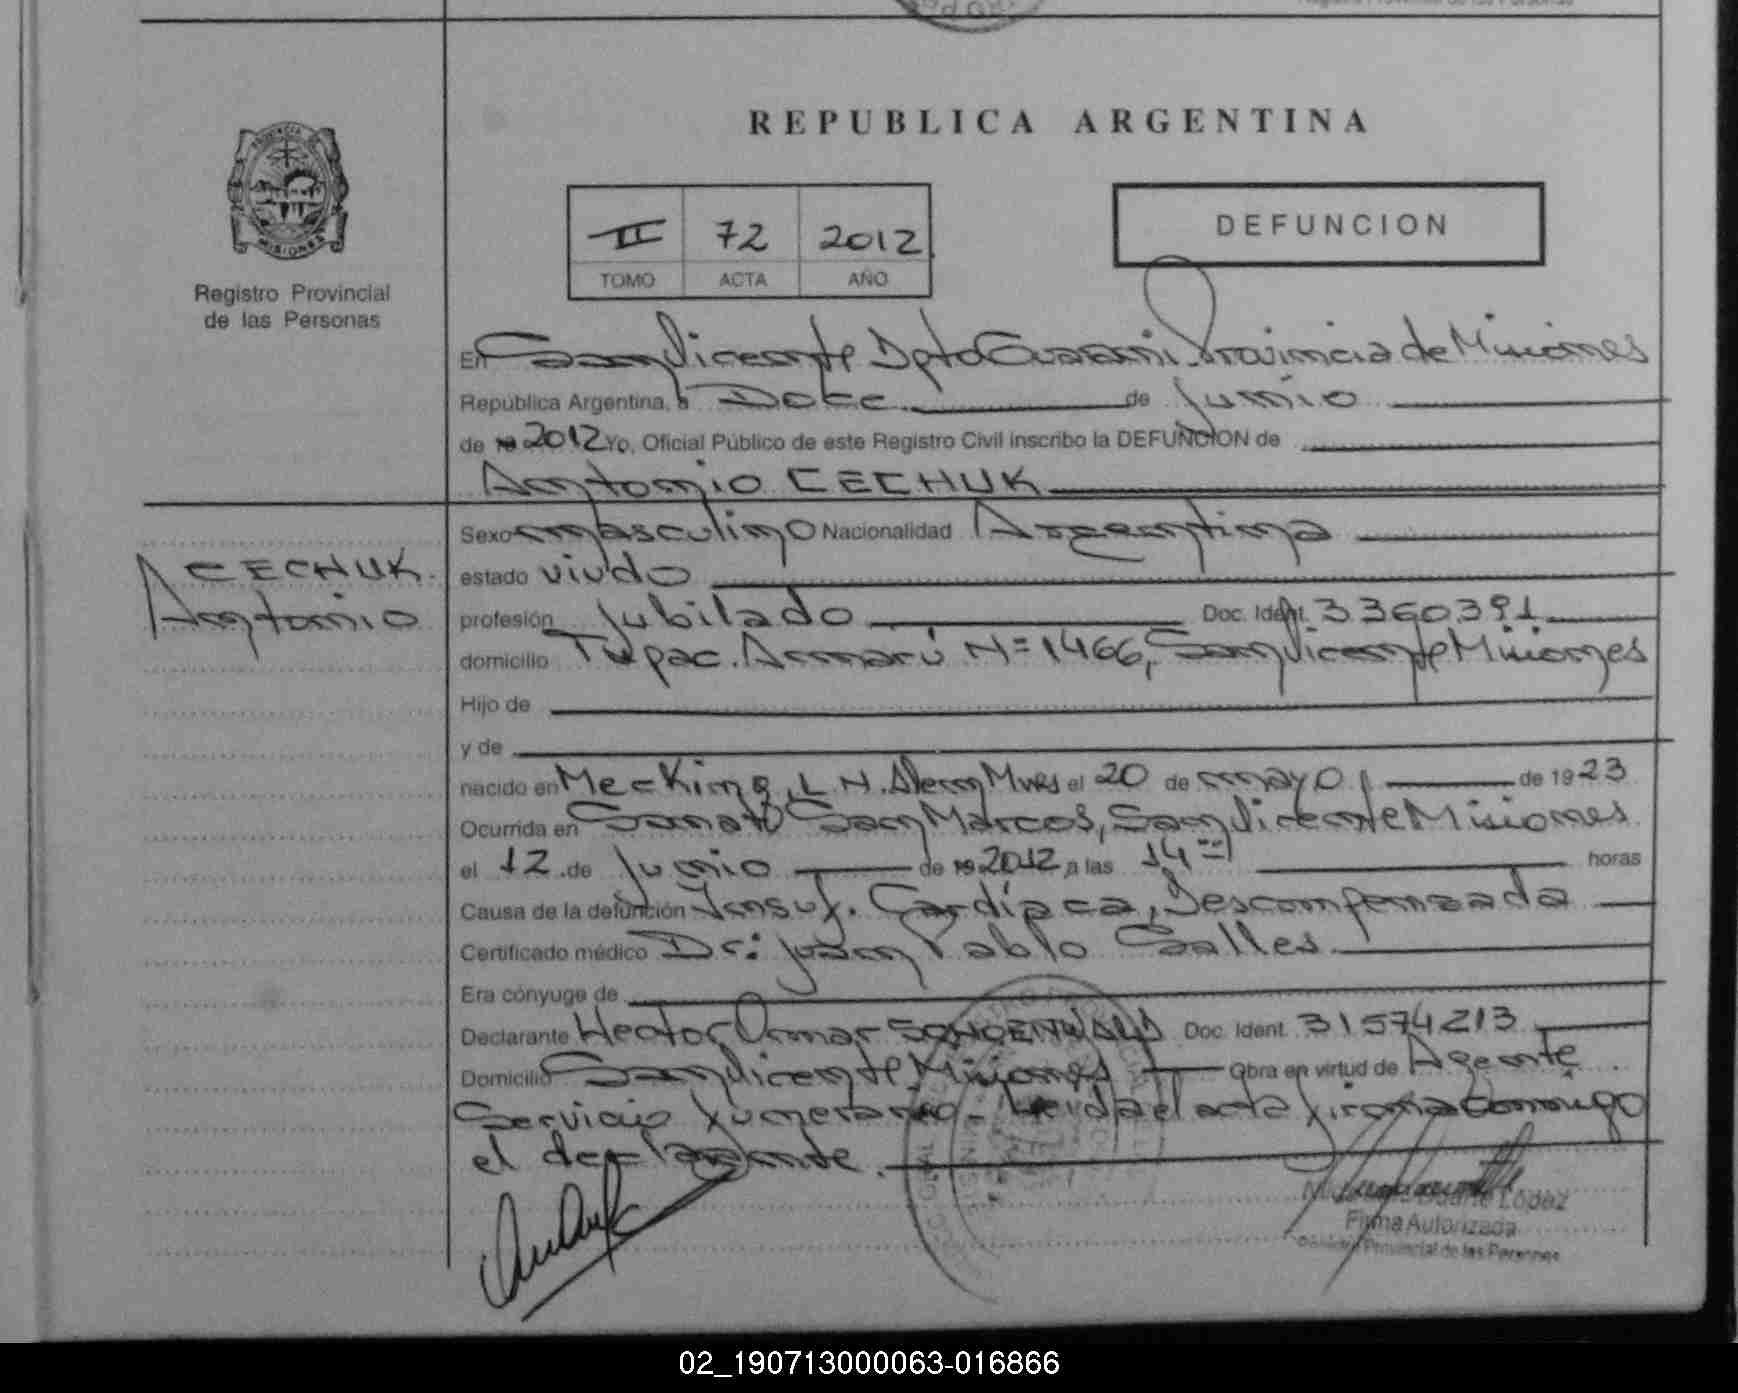 REPUBLICA ARGENTINA
PROVINCIA
MISIONES
Registro Provincial
de las Personas
II 72 2012
TOMO ACTA AÑO
DEFUNCION
En San Vicente Dpto Guaraní Provincia de Misiones
República Argentina, a Doce de Junio
de 19 2012 Yo, Oficial Público de este Registro Civil inscribo la DEFUNCION de
Antonio CECHUK
CECHUK
Antonio
Sexo masculino Nacionalidad Argentina
estado viudo
profesión Jubilado Doc. Ident. 3.360.391
domicilio Tupac. Amarú N=1466, San Vicente Misiones
Hijo de
y de
nacido en Mecking, L. N. Alem Mnes el 20 de mayo de 1923
Ocurrida en Sanat San Marcos, San Vicente Misiones
el 12 de Junio de 19 2012 a las 14 horas
Causa de la defunción Insuf. Cardíaca, Descompensada
Certificado médico Dr: Juan Pablo Salles
Era cónyuge de
Declarante Hector Omar Doc. Ident. 31574213
Domicilio San Vicente Misiones Obra en virtud de Agente
Servicio funerario - Leida el acta firma conmigo
el declarante.
Duarte López
Firma Autorizada
Provincial de las Personas
02_190713000063-016866